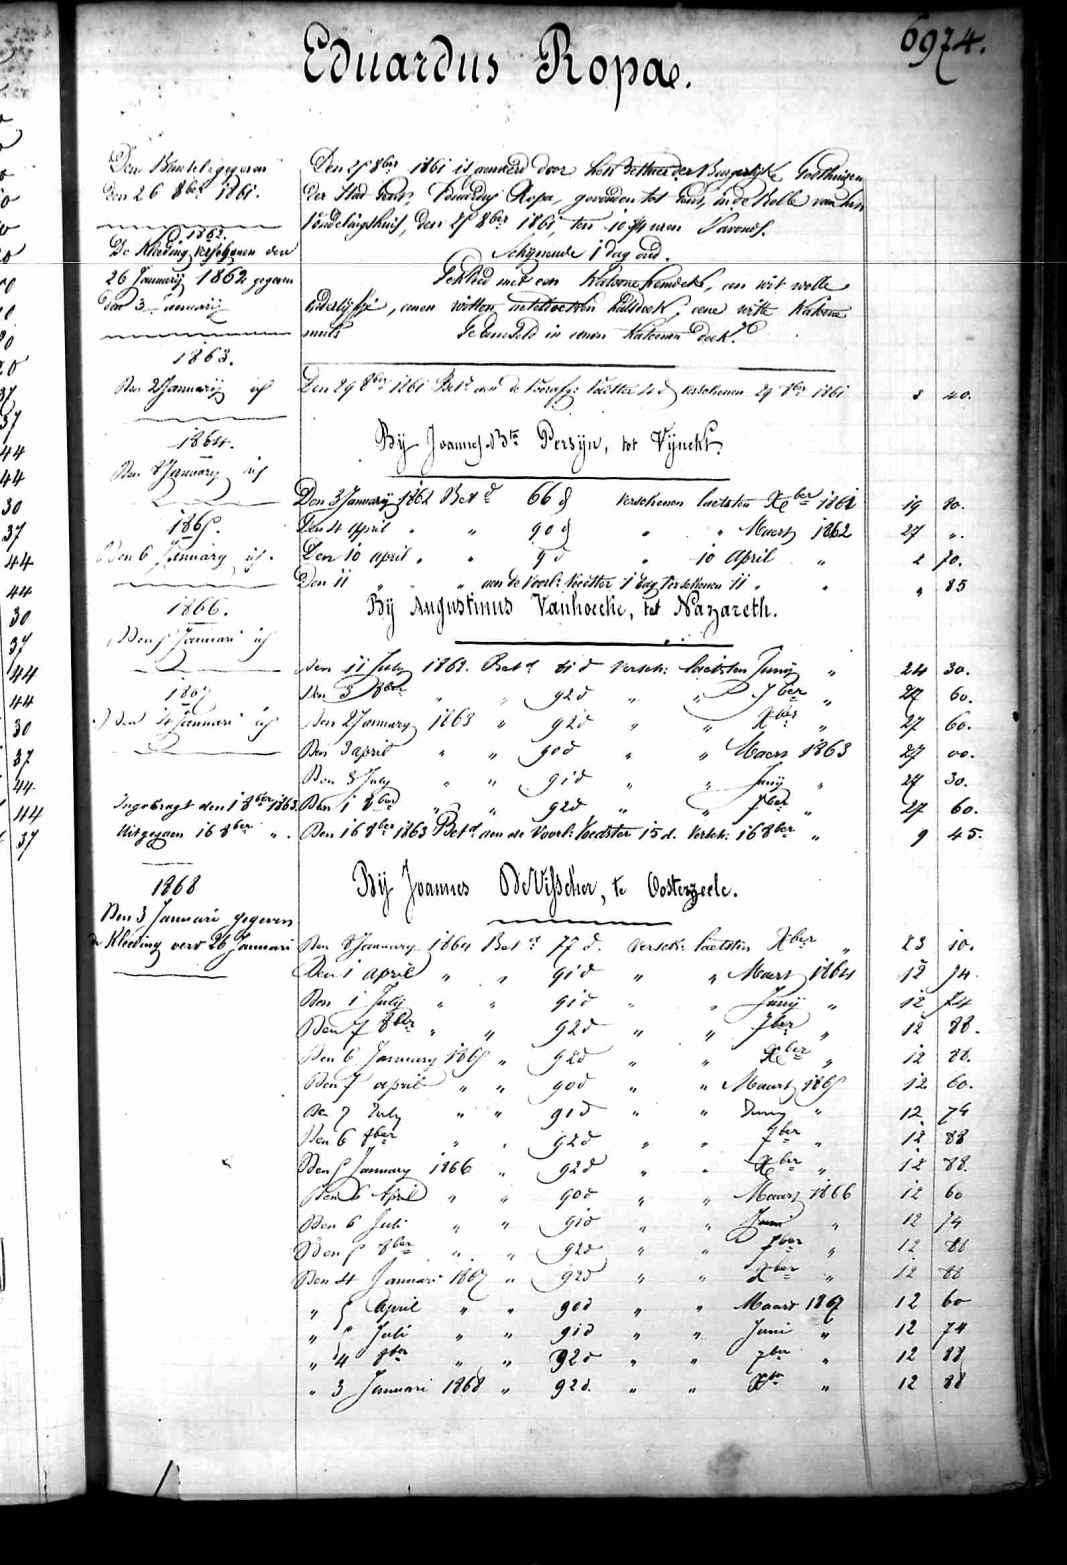 6974.
Eduardus Ropae.
Den Bundel gegeven
den 26 8ber 1861.
1862.
De Kleeding verschenen den
26 January 1862 gegeven
den 3 January
1863.
Den 2 Januarij id
1864.
Den 8 January id
1865.
Den 6 January id.
1866.
Den 5 Januari id
1867
Den 4 Januari id
Ingebragt den 1 8ber 1863.
Uitgegaen 16 8ber " .
1868
Den 3 Januari gegeven
de Kleeding vers 26 Januari
Den 25 8ber 1861 is aenveerd door het Bestier der Burgerlijke Godthuizen
der Stad Gent, Eduardus Ropa, gevonden tot Gent, in de Rolle van het
Vondelingshuis, den 25 8ber 1861, ten 10 3/4 uren 's avonds.
Schynende 1 dag oud.
Gekleed met een Katoene hemdeke, een wit wolle
onderlyfje, eenen witten halsdoek, eene witte Katoene
muts Gebundeld in eenen Katoenen doek.
Den 29 8ber 1861 Bet. aen de Voorss: Voedster 4 d verschenen 29 8ber 1861 3 40.
Bij Joannes Bte Persijn, tot Vijnckt.
Den 3 Januarij 1862 Bet d 66 d verschenen laetsten Xber 1861 19 80.
Den 4 april " " 90 d " " Maert 1862 27 ".
Den 10 april " " 9 d " 10 April " 2 70.
Den 11 " " aen de Voorls Voedster 1 dag verschenen 11 " " " 85
Bij Augustinus Vanhoecke, tot Nazareth.
Den 11 July 1862. Bet d 81 d versch: laetsten Junij " 24 30.
Den 3 8ber " " 92 d " " 7ber " 27 60.
Den 2 January 1863 " 92 d " " Xber " 27 60.
Den 3 april " " 90 d " " Maers 1863 27 00.
Den 8 July " " 91 d " " Junij " 27 30.
Den 1 8ber " " 92 d " " 7ber " 27 60.
Den 16 8ber 1863 Bet d aen de Voorls: Voedster 15 d. Versch: 16 8ber " 9 45.
Bij Joannes DeVisscher, te Oosterzeele.
Den 8 January 1864 Bet d 77 d. versch: laetsten Xber " 23 10.
Den 1 april " " 91 d " " Maert 1864 12 74.
Den 1 July " " 91 d " " Junij " 12 74
Den 7 8ber " " 92 d " " 7ber " 12 88.
Den 6 January 1865 " 92 d " " Xber " 12 88.
Den 7 april " " 90 d " " Maert 1865 12 60.
Den 7 July " " 91 d " " Juny " 12 74
Den 6 8ber " " 92 d " " 7ber " 12 88
Den 5 January 1866 " 92 d " " Xber " 12 88.
Den 6 April " " 90 d " " Maart 1866 12 60
Den 6 Juli " " 91 d " " Juni " 12 74
Den 5 8ber " " 92 d " " 7ber " 12 88
Den 4 Januari 1867 " 92 d " " Xber " 12 88
" 5 April " " 90 d " " Maart 1867 12 60
" 5 Juli " " 91 d " " Juni " 12 74
" 4 8ber " " 92 d " " 7ber " 12 88
" 3 Januari 1868 " 92 d. " " Xber " 12 88